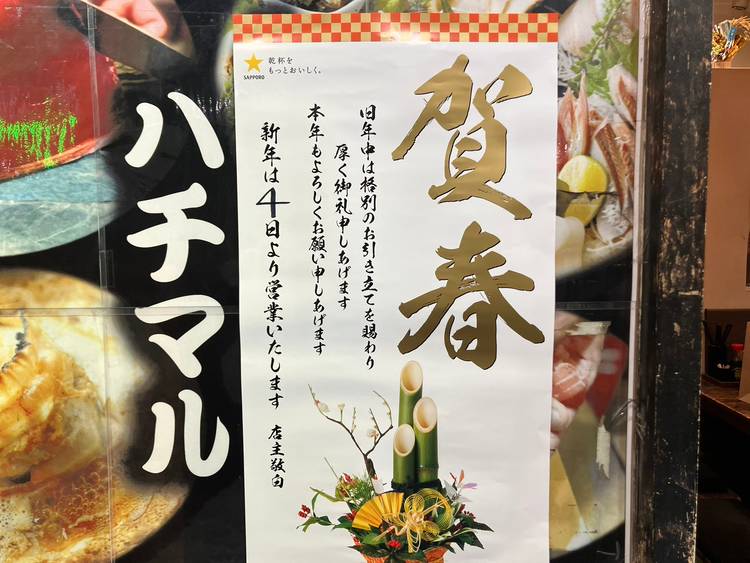 ハチマル
SAPPORO
乾杯を
もっとおいしく。
賀春
旧年中は格別のお引き立てを賜わり
厚く御礼申しあげます
本年もよろしくお願い申しあげます
新年は4日より営業いたします 店主敬白